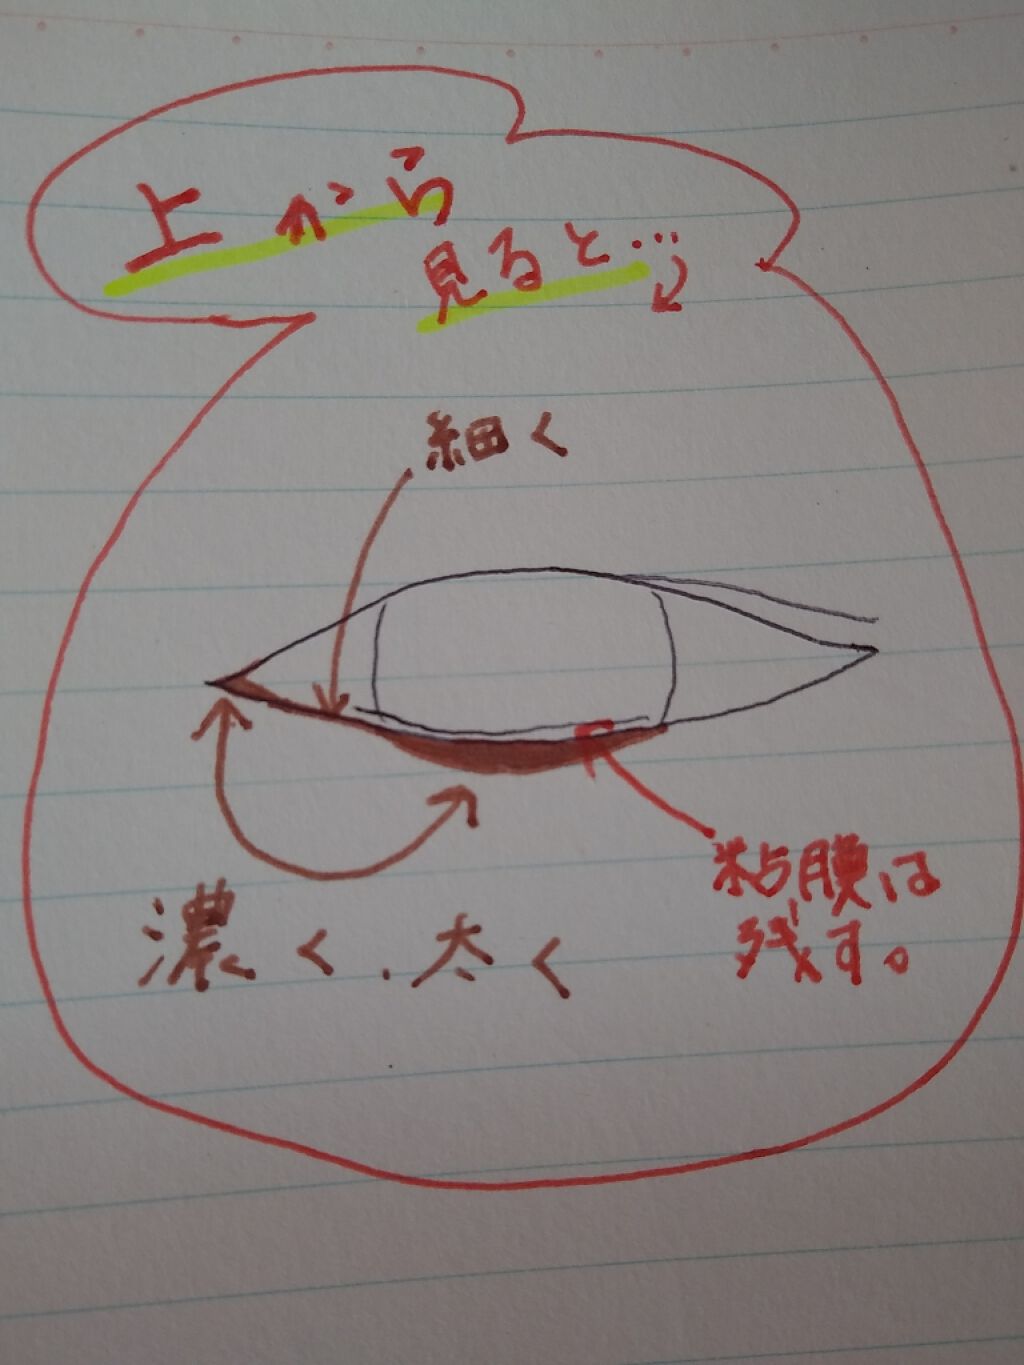 上から
見ると…
細く
濃く、太く
粘膜は
残す。